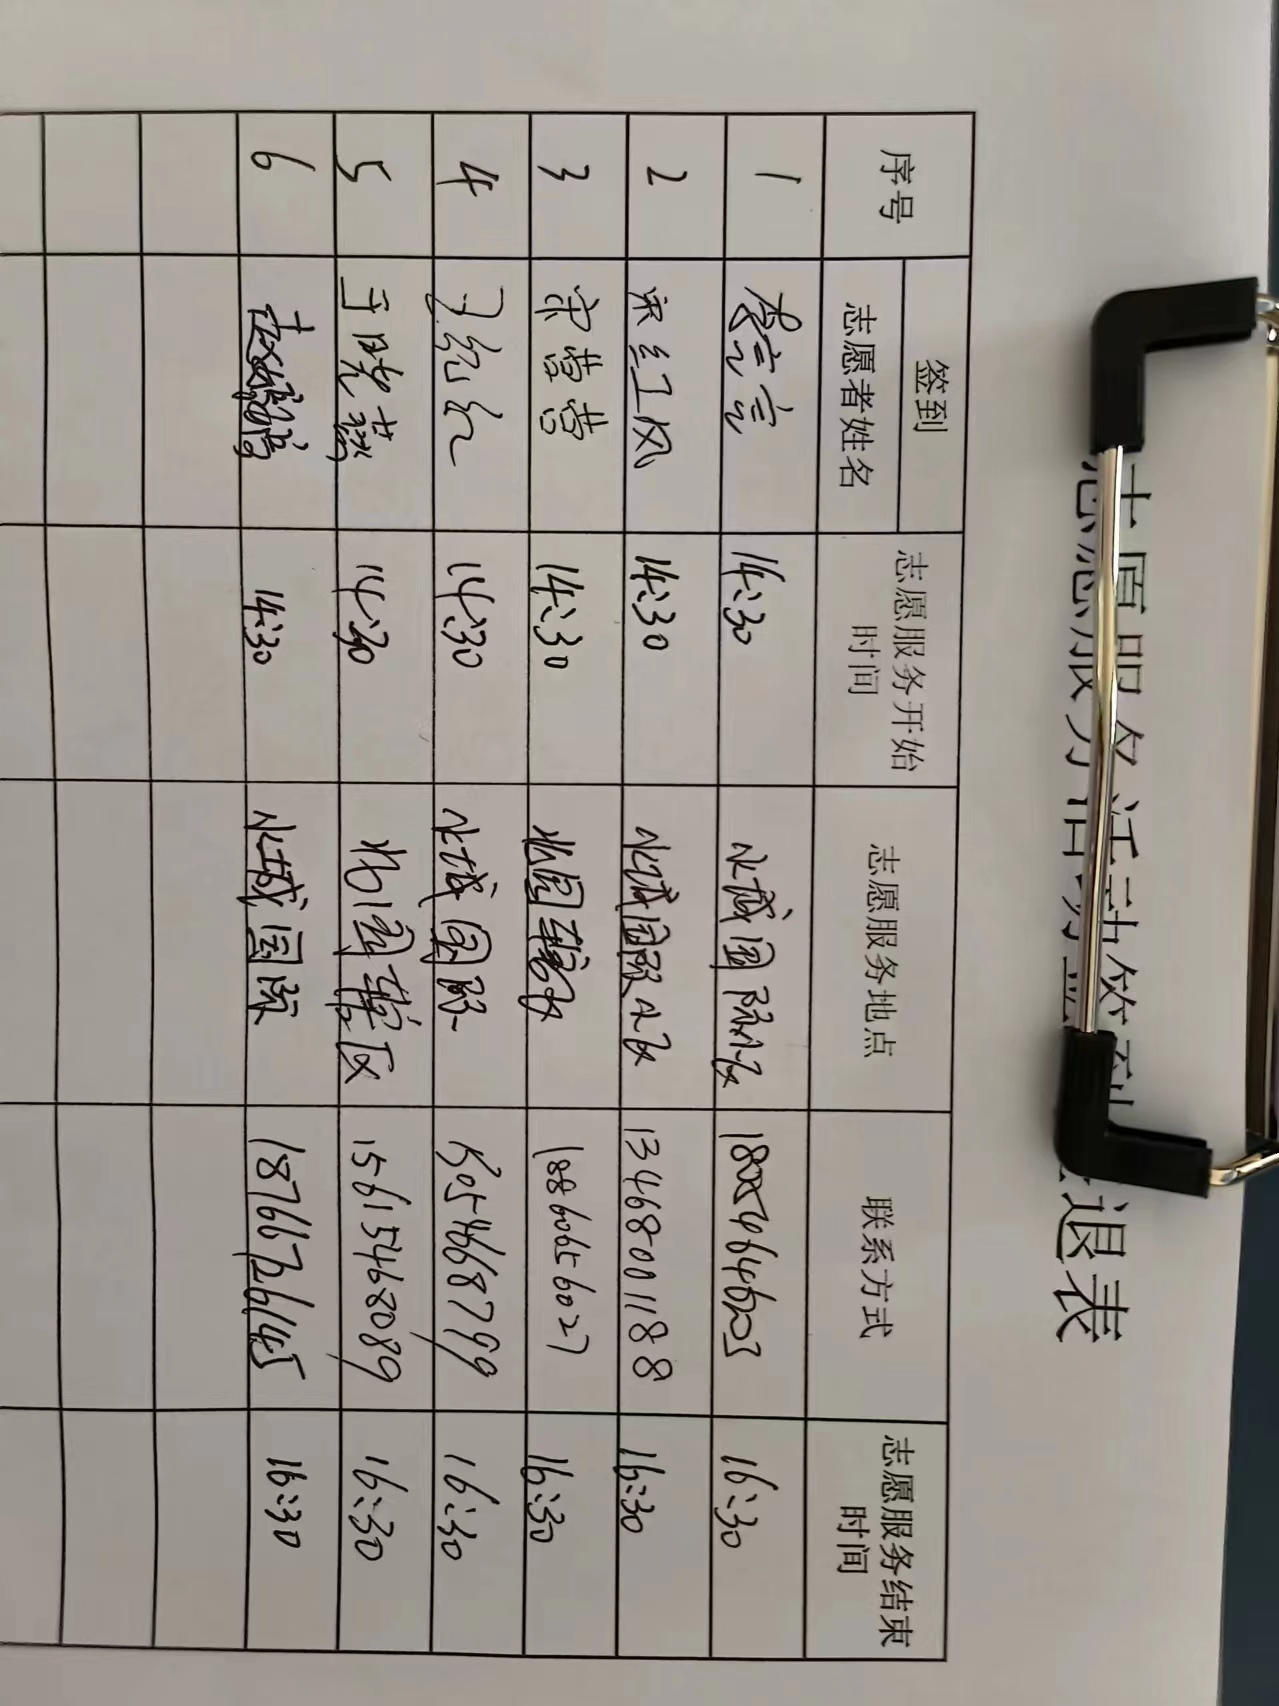 志愿服务活动签到签退表
序号 签到 志愿者姓名 志愿服务开始时间 志愿服务地点 联系方式 志愿服务结束时间
1 14:30 水城国际小区 16:30
2 宋红风 14:30 水城国际小区 13468001188 16:30
3 宋营营 14:30 18860656027 16:30
4 14:30 水城国际 15054668799 16:30
5 于晓燕 14:30 15615468089 16:30
6 14:30 水城国际 18766726145 16:30